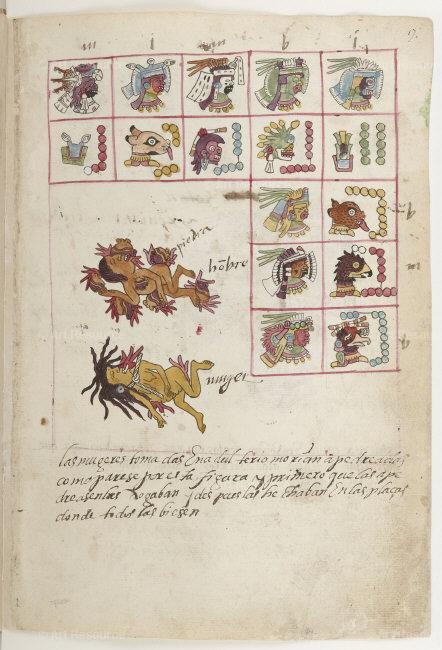 17.
piedra
hõbre
muger
las mugeres toma das En adul terio morian apedreadas
como parese por esta figura y primero que las ape
dreasen las aogaban y des pues las he chaban En las plaças
donde todos las biesen
Art Resource